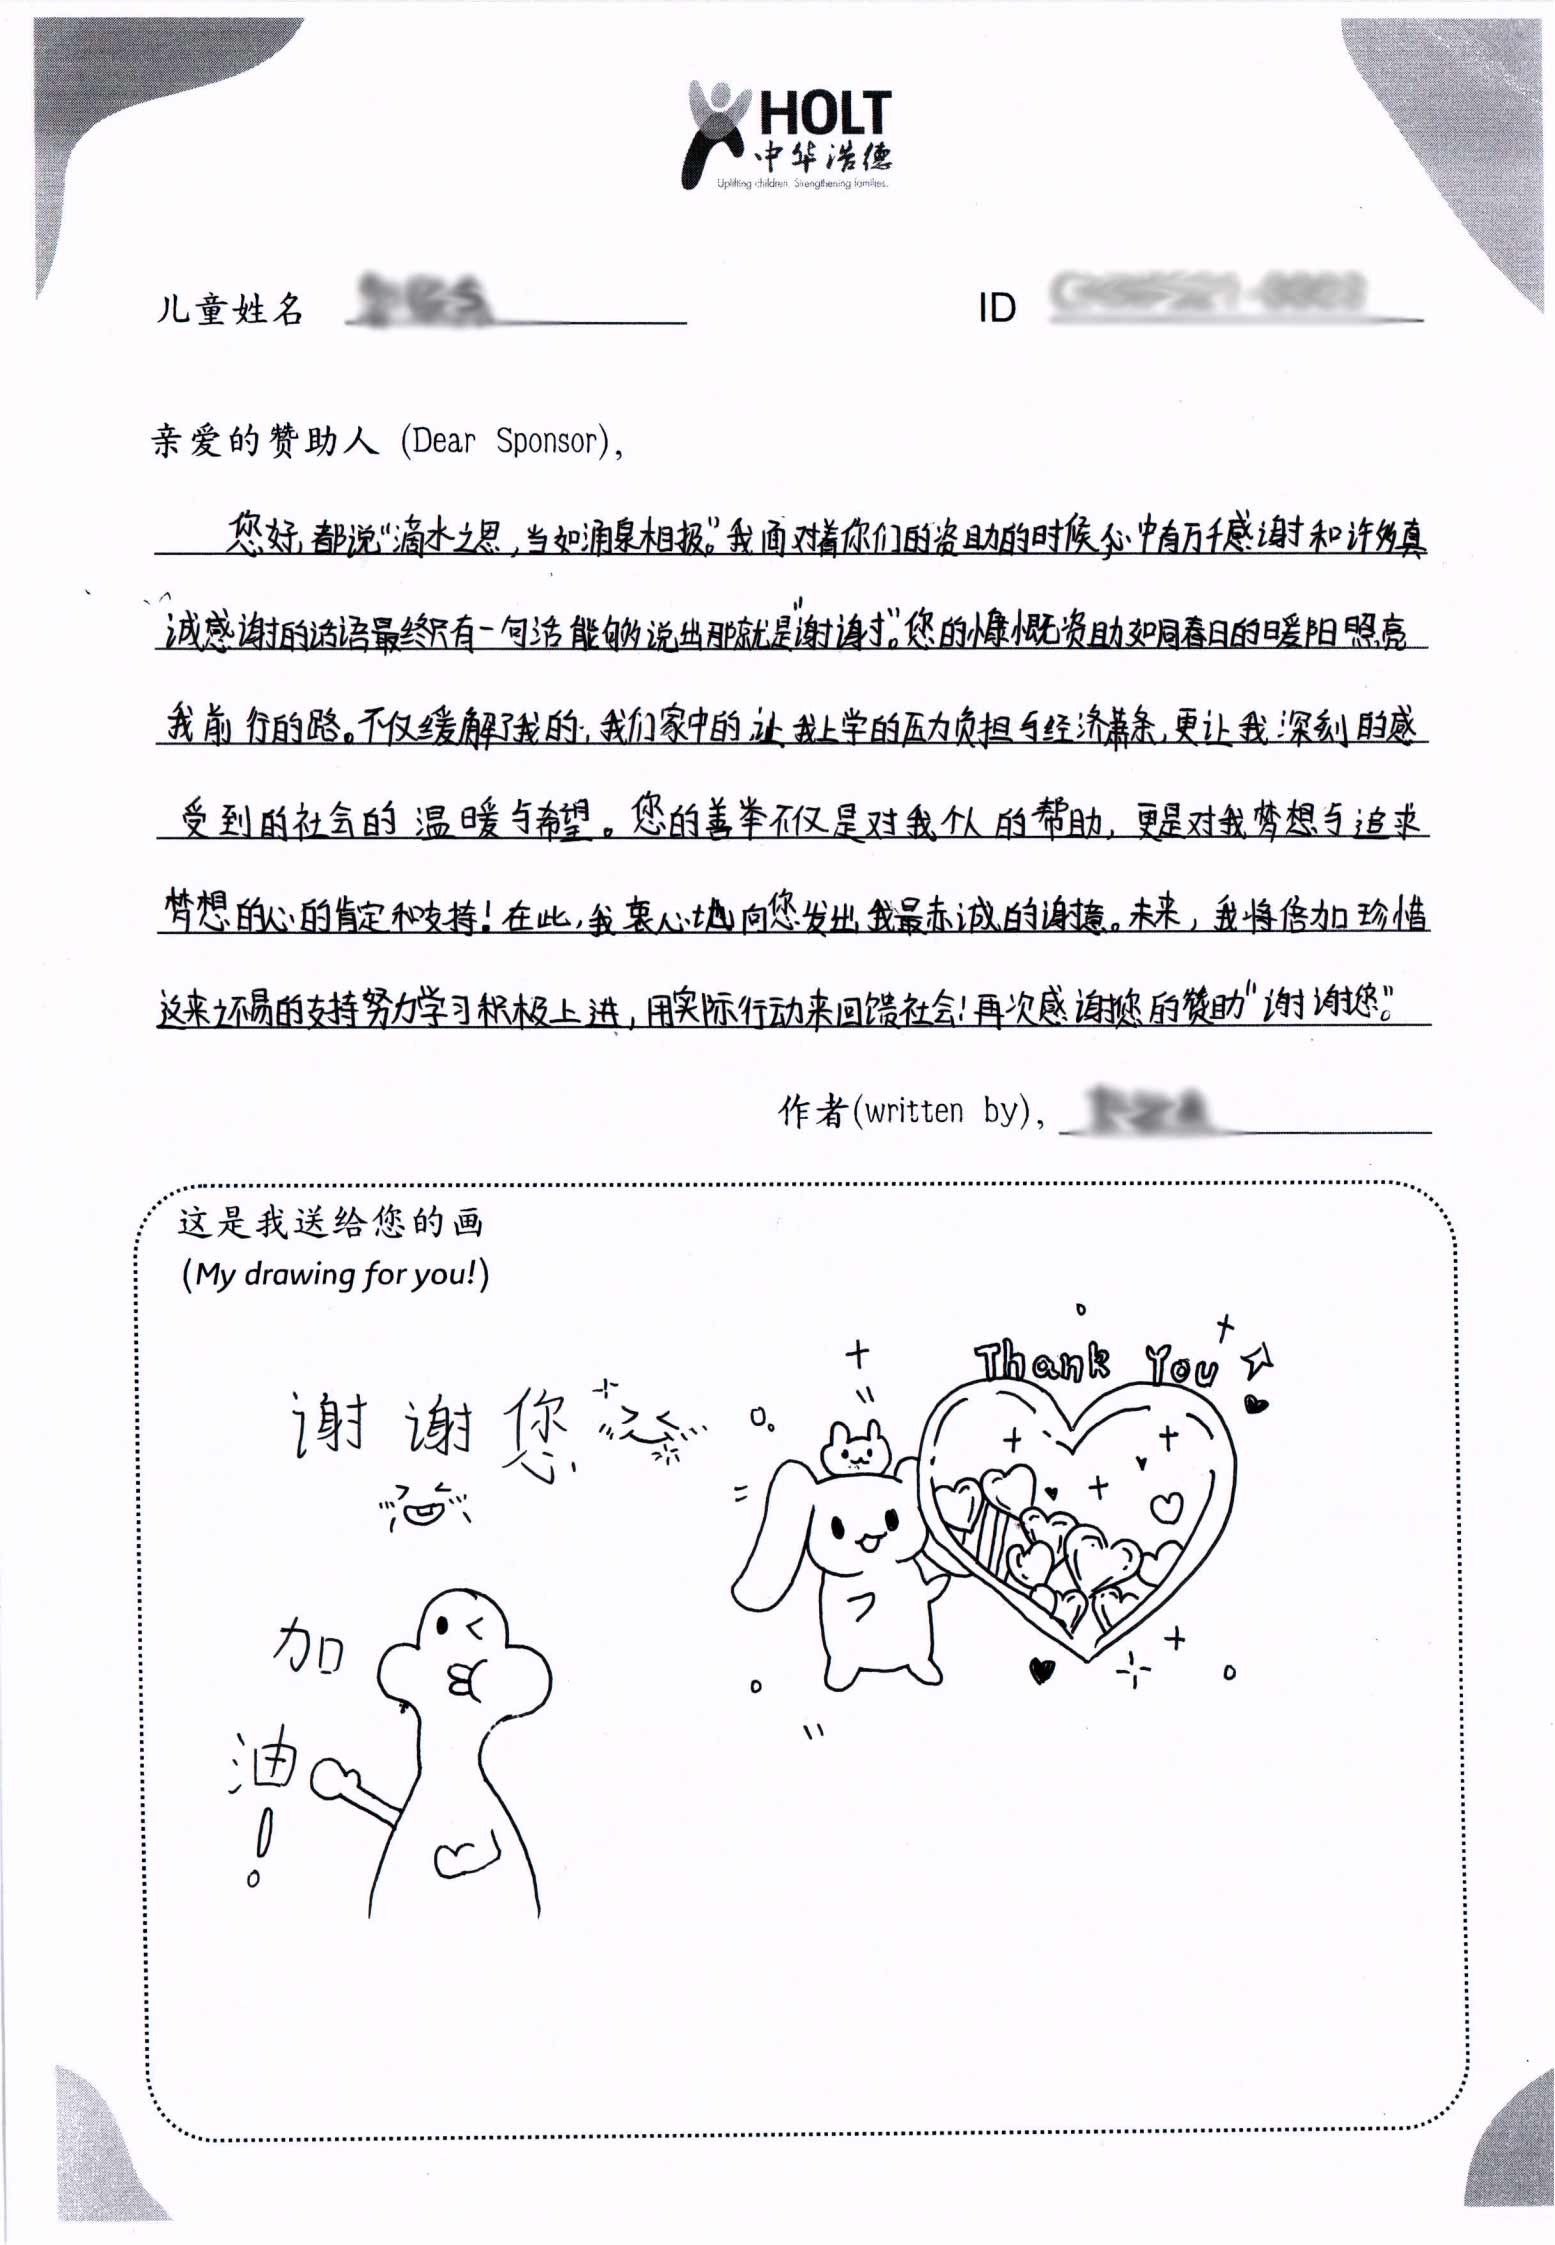 HOLT
中华浩德
Uplifting children. Strengthening families.
儿童姓名
ID
亲爱的赞助人 (Dear Sponsor),
您好，都说“滴水之恩，当如涌泉相报”。我面对着你们的资助的时候心中有万千感谢和许多真
诚感谢的话语最终只有一句话能够说出那就是“谢谢”。您的慷慨资助如同春日的暖阳照亮
我前行的路。不仅缓解了我的，我们家中的，让我上学的压力负担与经济萧条，更让我深刻的感
受到的社会的温暖与希望。您的善举不仅是对我个人的帮助，更是对我梦想与追求
梦想的心的肯定和支持！在此，我衷心地向您发出我最赤诚的谢意。未来，我将倍加珍惜
这来之不易的支持努力学习积极上进，用实际行动来回馈社会！再次感谢您的赞助“谢谢您”。
作者(written by),
这是我送给您的画
(My drawing for you!)
Thank You
谢谢您
加
油
!